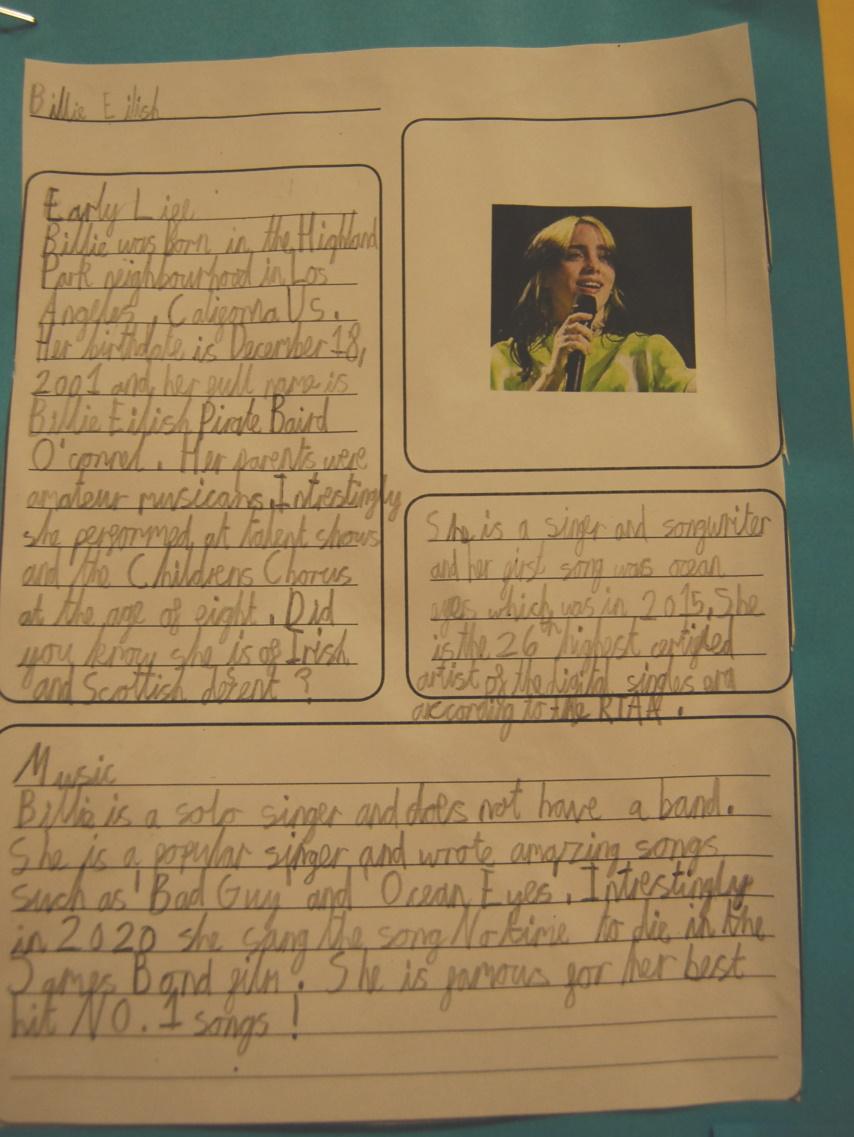 Billie Eilish
Early Life
Billie was born in the Highland
Park neighbourhood in Los
Angeles, Califorma Us.
Her birthdate is December 18,
2001 and her full name is
Billie Eilish Pirate Baird
O'connel. Her parents were
amateur musicans. Intrestingly
she performed at talent shows
and the Childrens Chorus
at the age of eight. Did
you know she is of Irish
and Scottish detent ?
She is a singer and songwriter
and her first song was ocean
eyes which was in 2015. She
is the 26th highest certified
artist of the digital singles era
according to the RIAA.
Music
Billie is a solo singer and does not have a band.
She is a popular singer and wrote amazing songs
such as 'Bad Guy' and 'Ocean Eyes'. Intrestingly
in 2020 she sang the song No time to die in the
James Bond film. She is famous for her best
hit NO. 1 songs !